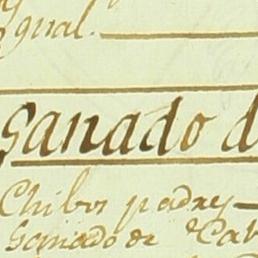 gual.
Ganado d
Chibos padres
Ganado de Cab